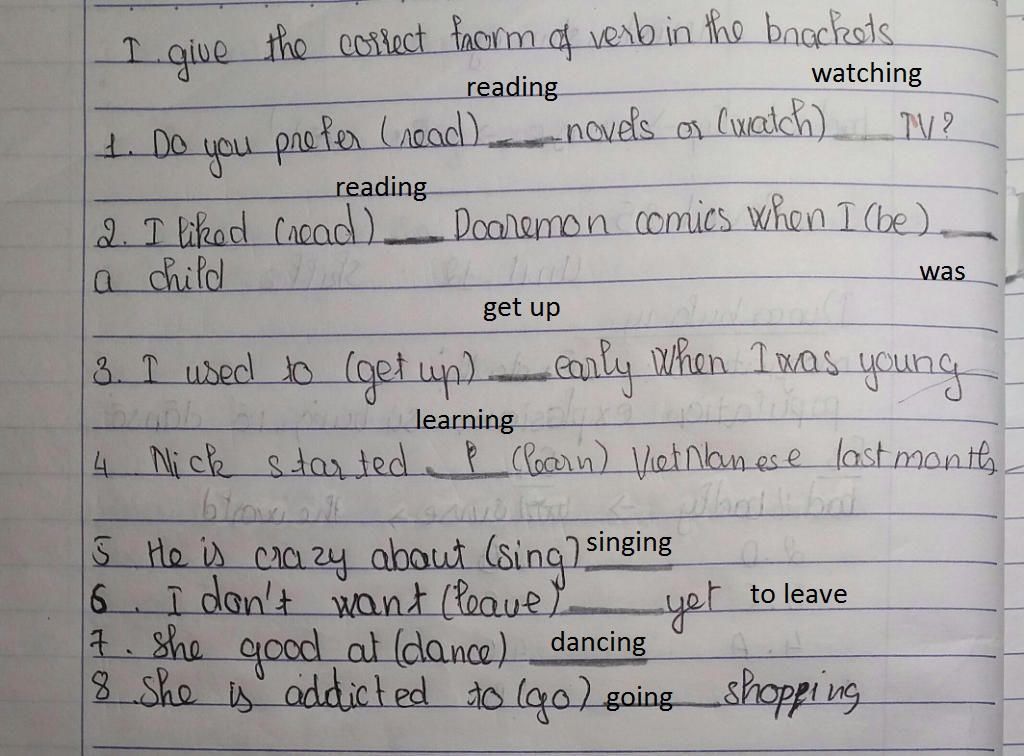 I. give the correct fnorm of verb in the bnackets
reading watching
1. Do you prefer (read) ___ novels or (watch) ___ TV?
reading
2. I liked (read) ___ Dooremon comics when I (be) ___
a child was
get up
3. I used to (get up) ___ early when I was young
learning
4 Nick started ___ (learn) VietNamese last month
5 He is crazy about (sing) singing
6. I don't want (leave) ___ yet to leave
7. she good at (dance) dancing
8 She is addicted to (go) going shopping